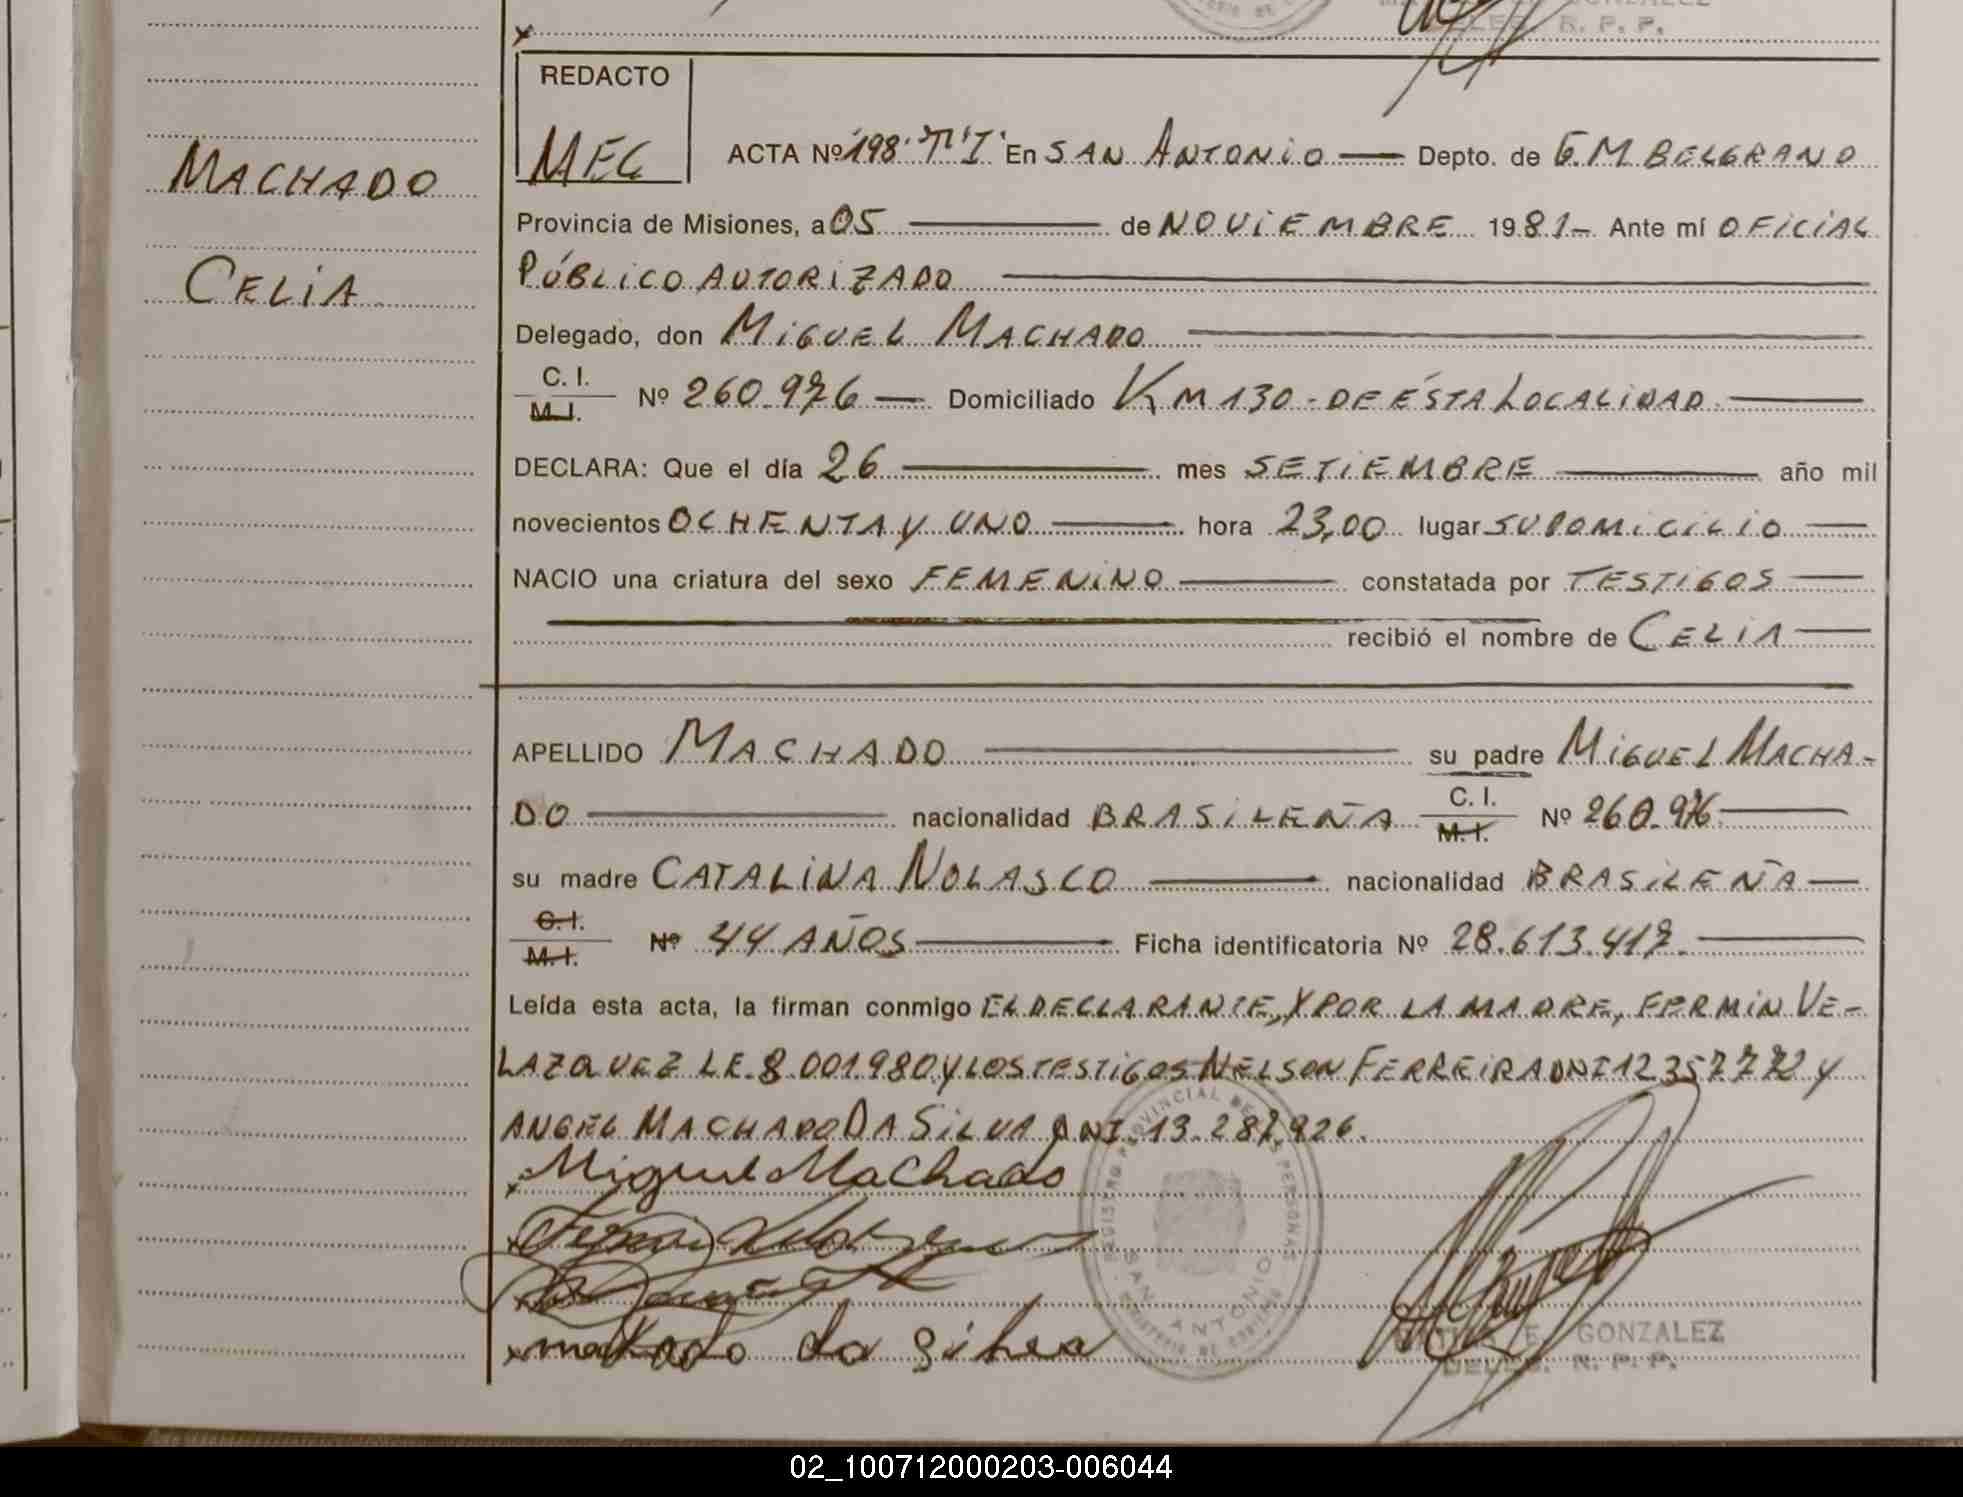 GONZALEZ
DELEG. R. P. P.
x
REDACTO
MEG
MACHADO
CELIA
ACTA Nº 198 "T" I" En SAN ANTONIO — Depto. de G.M BELGRANO
Provincia de Misiones, a 05 — de NOVIEMBRE 1981- Ante mí OFICIAL
PÚBLICO AUTORIZADO —
Delegado, don MIGUEL MACHADO —
C. I.
M. I. Nº 260.976 — Domiciliado KM 130 - DE ÉSTA LOCALIDAD —
DECLARA: Que el día 26 — mes SETIEMBRE — año mil
novecientos OCHENTA y UNO — hora 23,00 lugar SU DOMICILIO —
NACIO una criatura del sexo FEMENINO — constatada por TESTIGOS —
— recibió el nombre de CELIA —
APELLIDO MACHADO — su padre MIGUEL MACHA-
DO — nacionalidad BRASILEÑA C. I. M. I. Nº 260.976 —
su madre CATALINA NOLASCO — nacionalidad BRASILEÑA —
C. I.
M. I. Nº 44 AÑOS — Ficha identificatoria Nº 28.613.417. —
Leída esta acta, la firman conmigo EL DECLARANTE, Y POR LA MADRE, FERMIN VE-
LAZQUEZ L.E. 8.001.980 Y LOS TESTIGOS NELSON FERREIRA DNI 12.357.772 y
ANGEL MACHADO DA SILVA DNI 13.287.926.
x Miguel Machado
x machado da silva
REGISTRO PROVINCIAL DE LAS PERSONAS
SAN ANTONIO
E. GONZALEZ
DELEG. R. P. P.
02_100712000203-006044